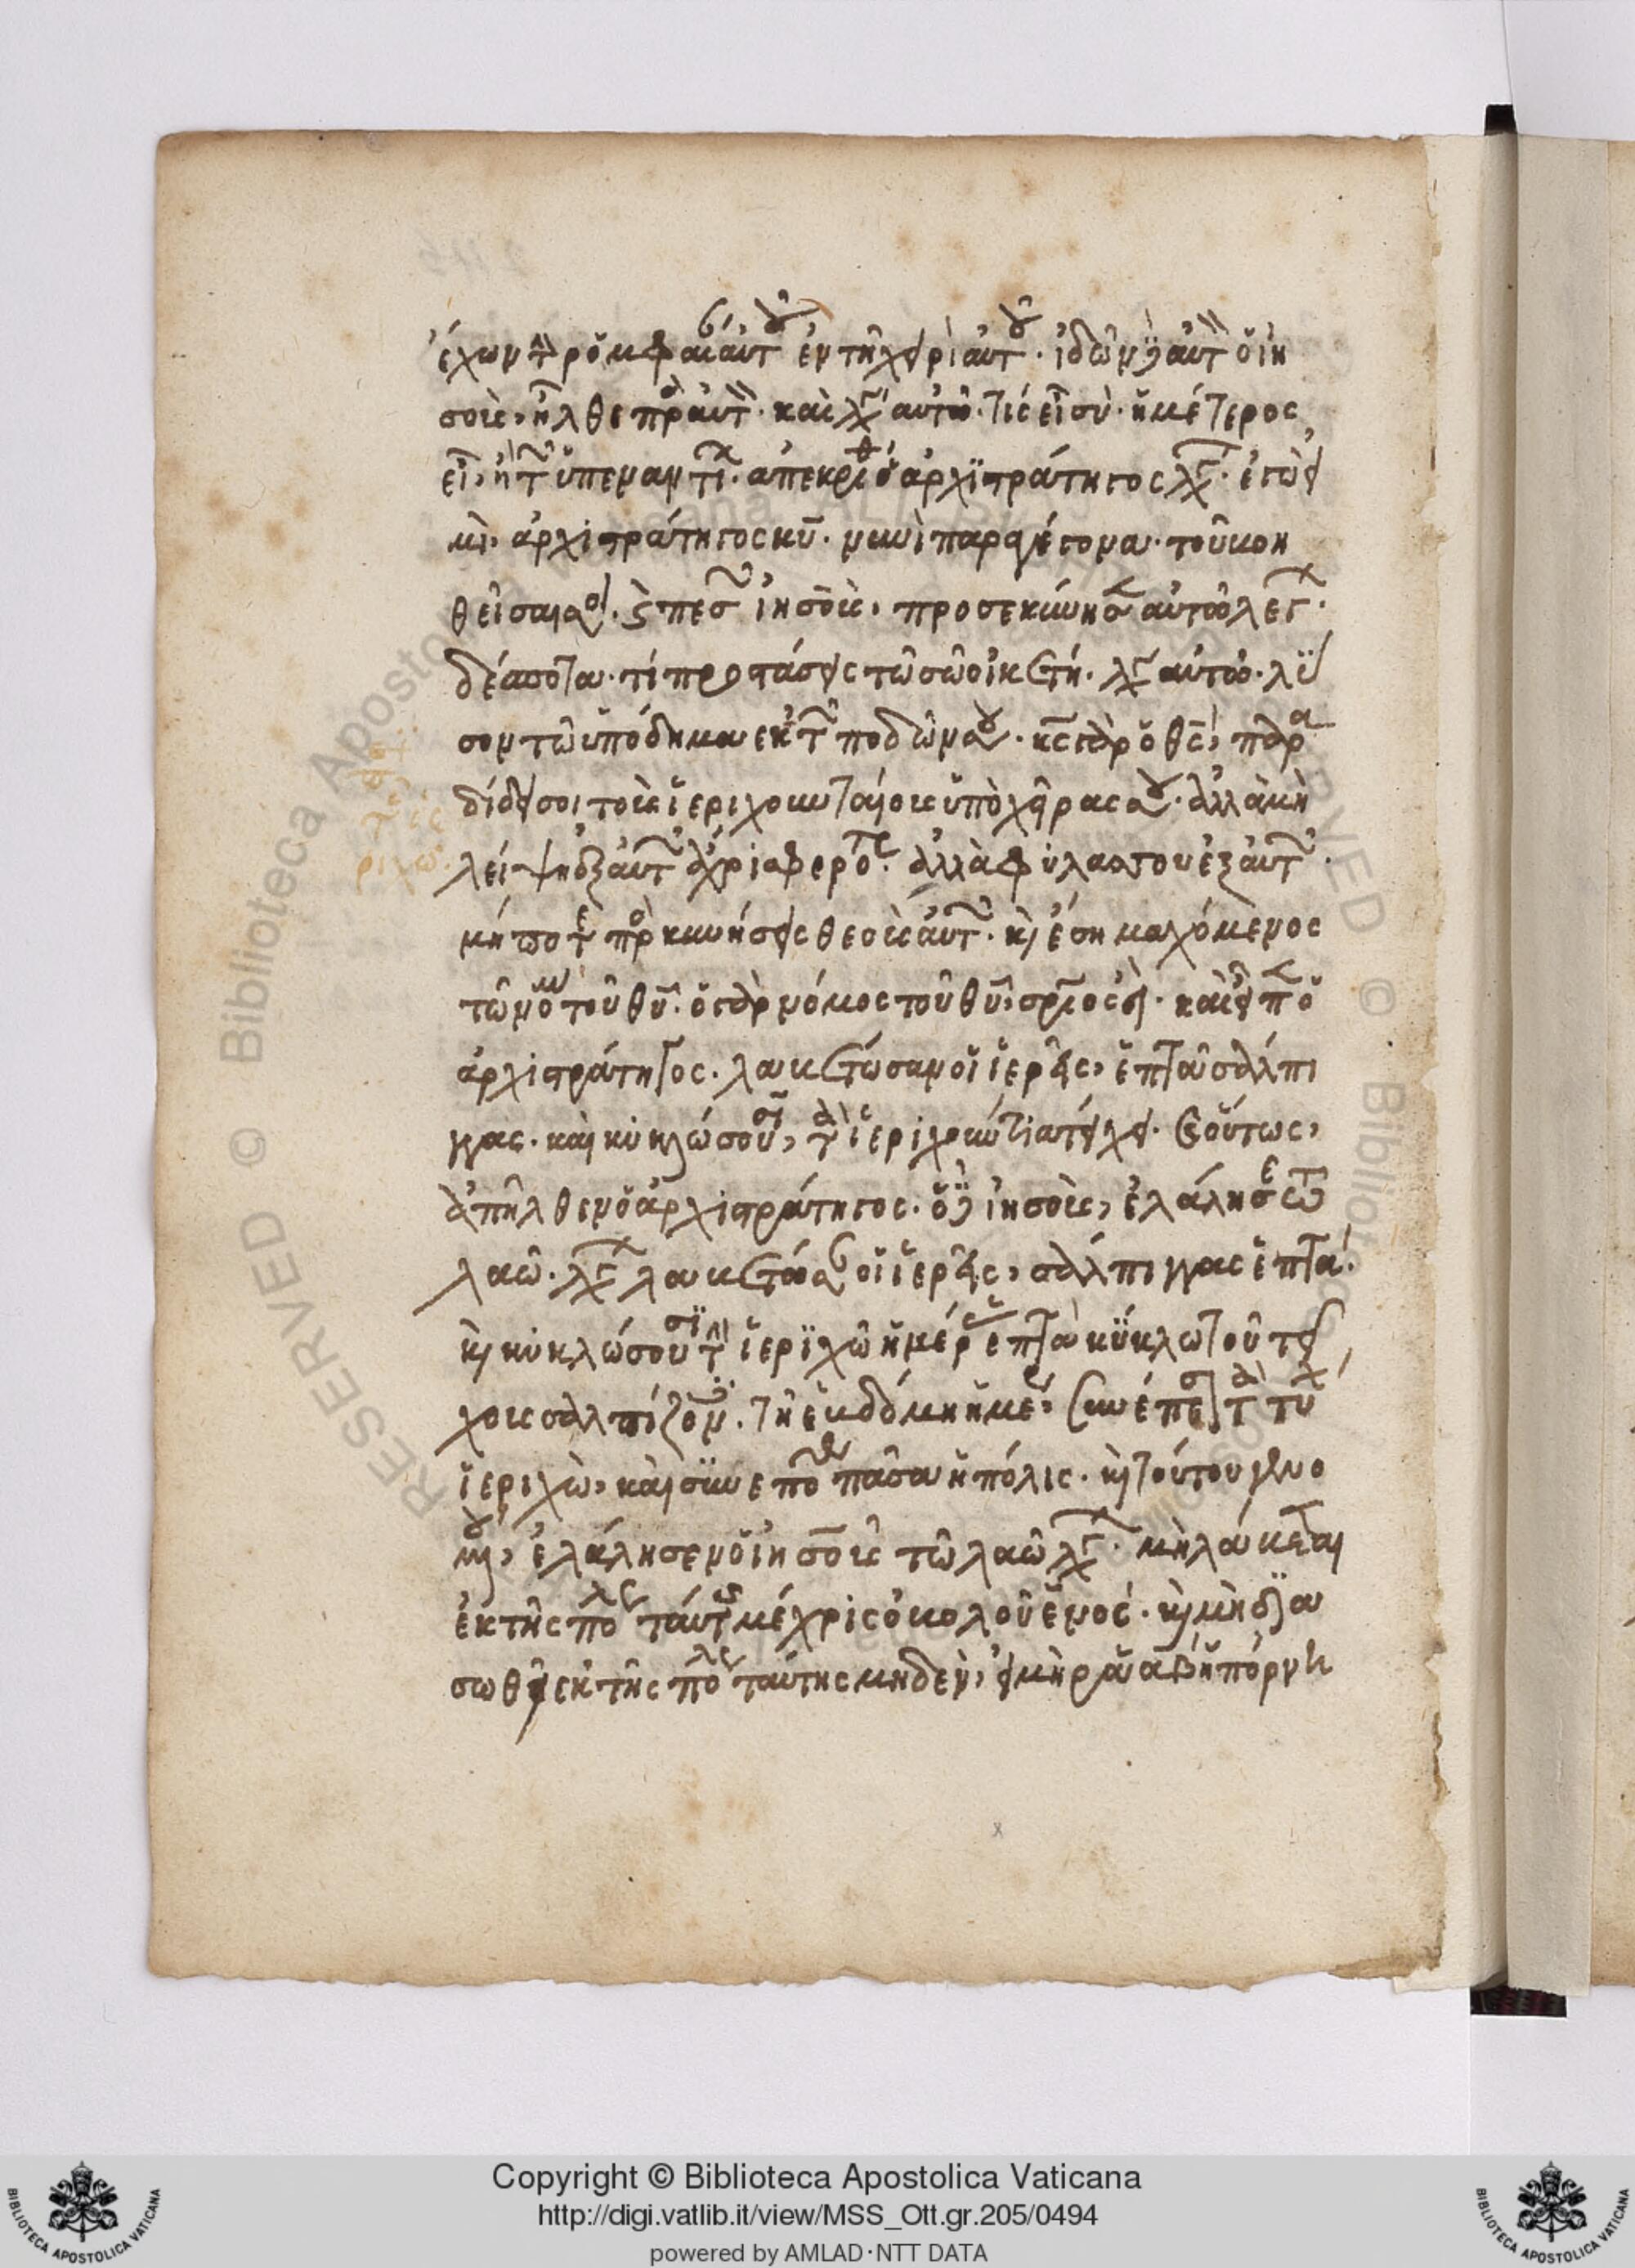 ἔχων τ ρομφαίαν αὐτοῦ ἐν τῇ χειρὶ αὐτοῦ · ἰδὼν δὲ αὐτὸν ὁ ἰη
σοῦς, ἦλθε πρὸς αὐτὸν · καὶ λέγει αὐτῷ · τίς εἶ σὺ · ἡμέτερος
εἶ, ἢ τῶν ὑπεναντίων · ἀπεκρίθη ὁ ἀρχιστράτηγος λέγων · ἐγώ εἰ
μι ἀρχιστράτηγος κυ · νυνὶ παραγέγονα · τοῦ βοη
θεῖσαί σοι · καὶ πεσὼν ἰησοῦς, προσεκύνησεν αὐτῷ λέγων ·
δέσποτα · τί προστάσεις τῷ σῷ οἰκέτῃ · λέγει αὐτῷ · λῦ
σον τὸ ὑπόδημα ἐκ τῶν ποδῶν σου · κς γὰρ ὁ θς, παρα
δίδει σοι τοὺς ἱεριχουνταίους ὑπὸ χεῖρας σου · ἀλλὰ μὴ
λείψῃ ἐξ αὐτῶν · ἀλλὰ φύλασσου ἐξ αὐτῶν ·
μήποτε προσκυνήσεις θεοὺς αὐτῶν · καὶ ἔσῃ μαχόμενος
τῷ νόμῳ τοῦ θυ · ὁ γὰρ νόμος τοῦ θυ · καὶ εἶπεν ὁ
ἀρχιστράτηγος · λαβέτωσαν οἱ ἱερεῖς, ἑπτὰ σάλπι
γγας · καὶ κυκλώσουσι, τὰ ἱεριχούντια τείχει · οὕτως,
ἀπῆλθεν ὁ ἀρχιστράτηγος · ὁ δὲ ἰησοῦς, ἐλάλησε τῷ
λαῷ · λέγων λαβέτωσαν οἱ ἱερεῖς, σάλπιγγας ἑπτά ·
καὶ κυκλώσουσι τὴν ἱεριχὼ ἡμέρας ἑπτὰ κύκλω τοῦ τεί
χους σαλπίζων · τῇ ἑβδόμῃ ἡμέρᾳ συνέπεσε τὰ τείχη
ἱεριχὼ, καὶ πᾶσα ἡ πόλις · καὶ τούτου γενο
μένου, ἐλάλησεν ὁ ἰησοῦς τῷ λαῷ λέγων · μὴ λάβεται
ἐκ τῆς πόλεως ταύτης μέχρις ὀβολοῦ ἑνός · καὶ μὴ δια
σωθῇ ἐκ τῆς πόλεως ταύτης μηδεὶν, εἰ μὴ ραὰβ ἡ πόρνη
Copyright © Biblioteca Apostolica Vaticana
http://digi.vatlib.it/view/MSS_Ott.gr.205/0494
powered by AMLAD·NTT DATA